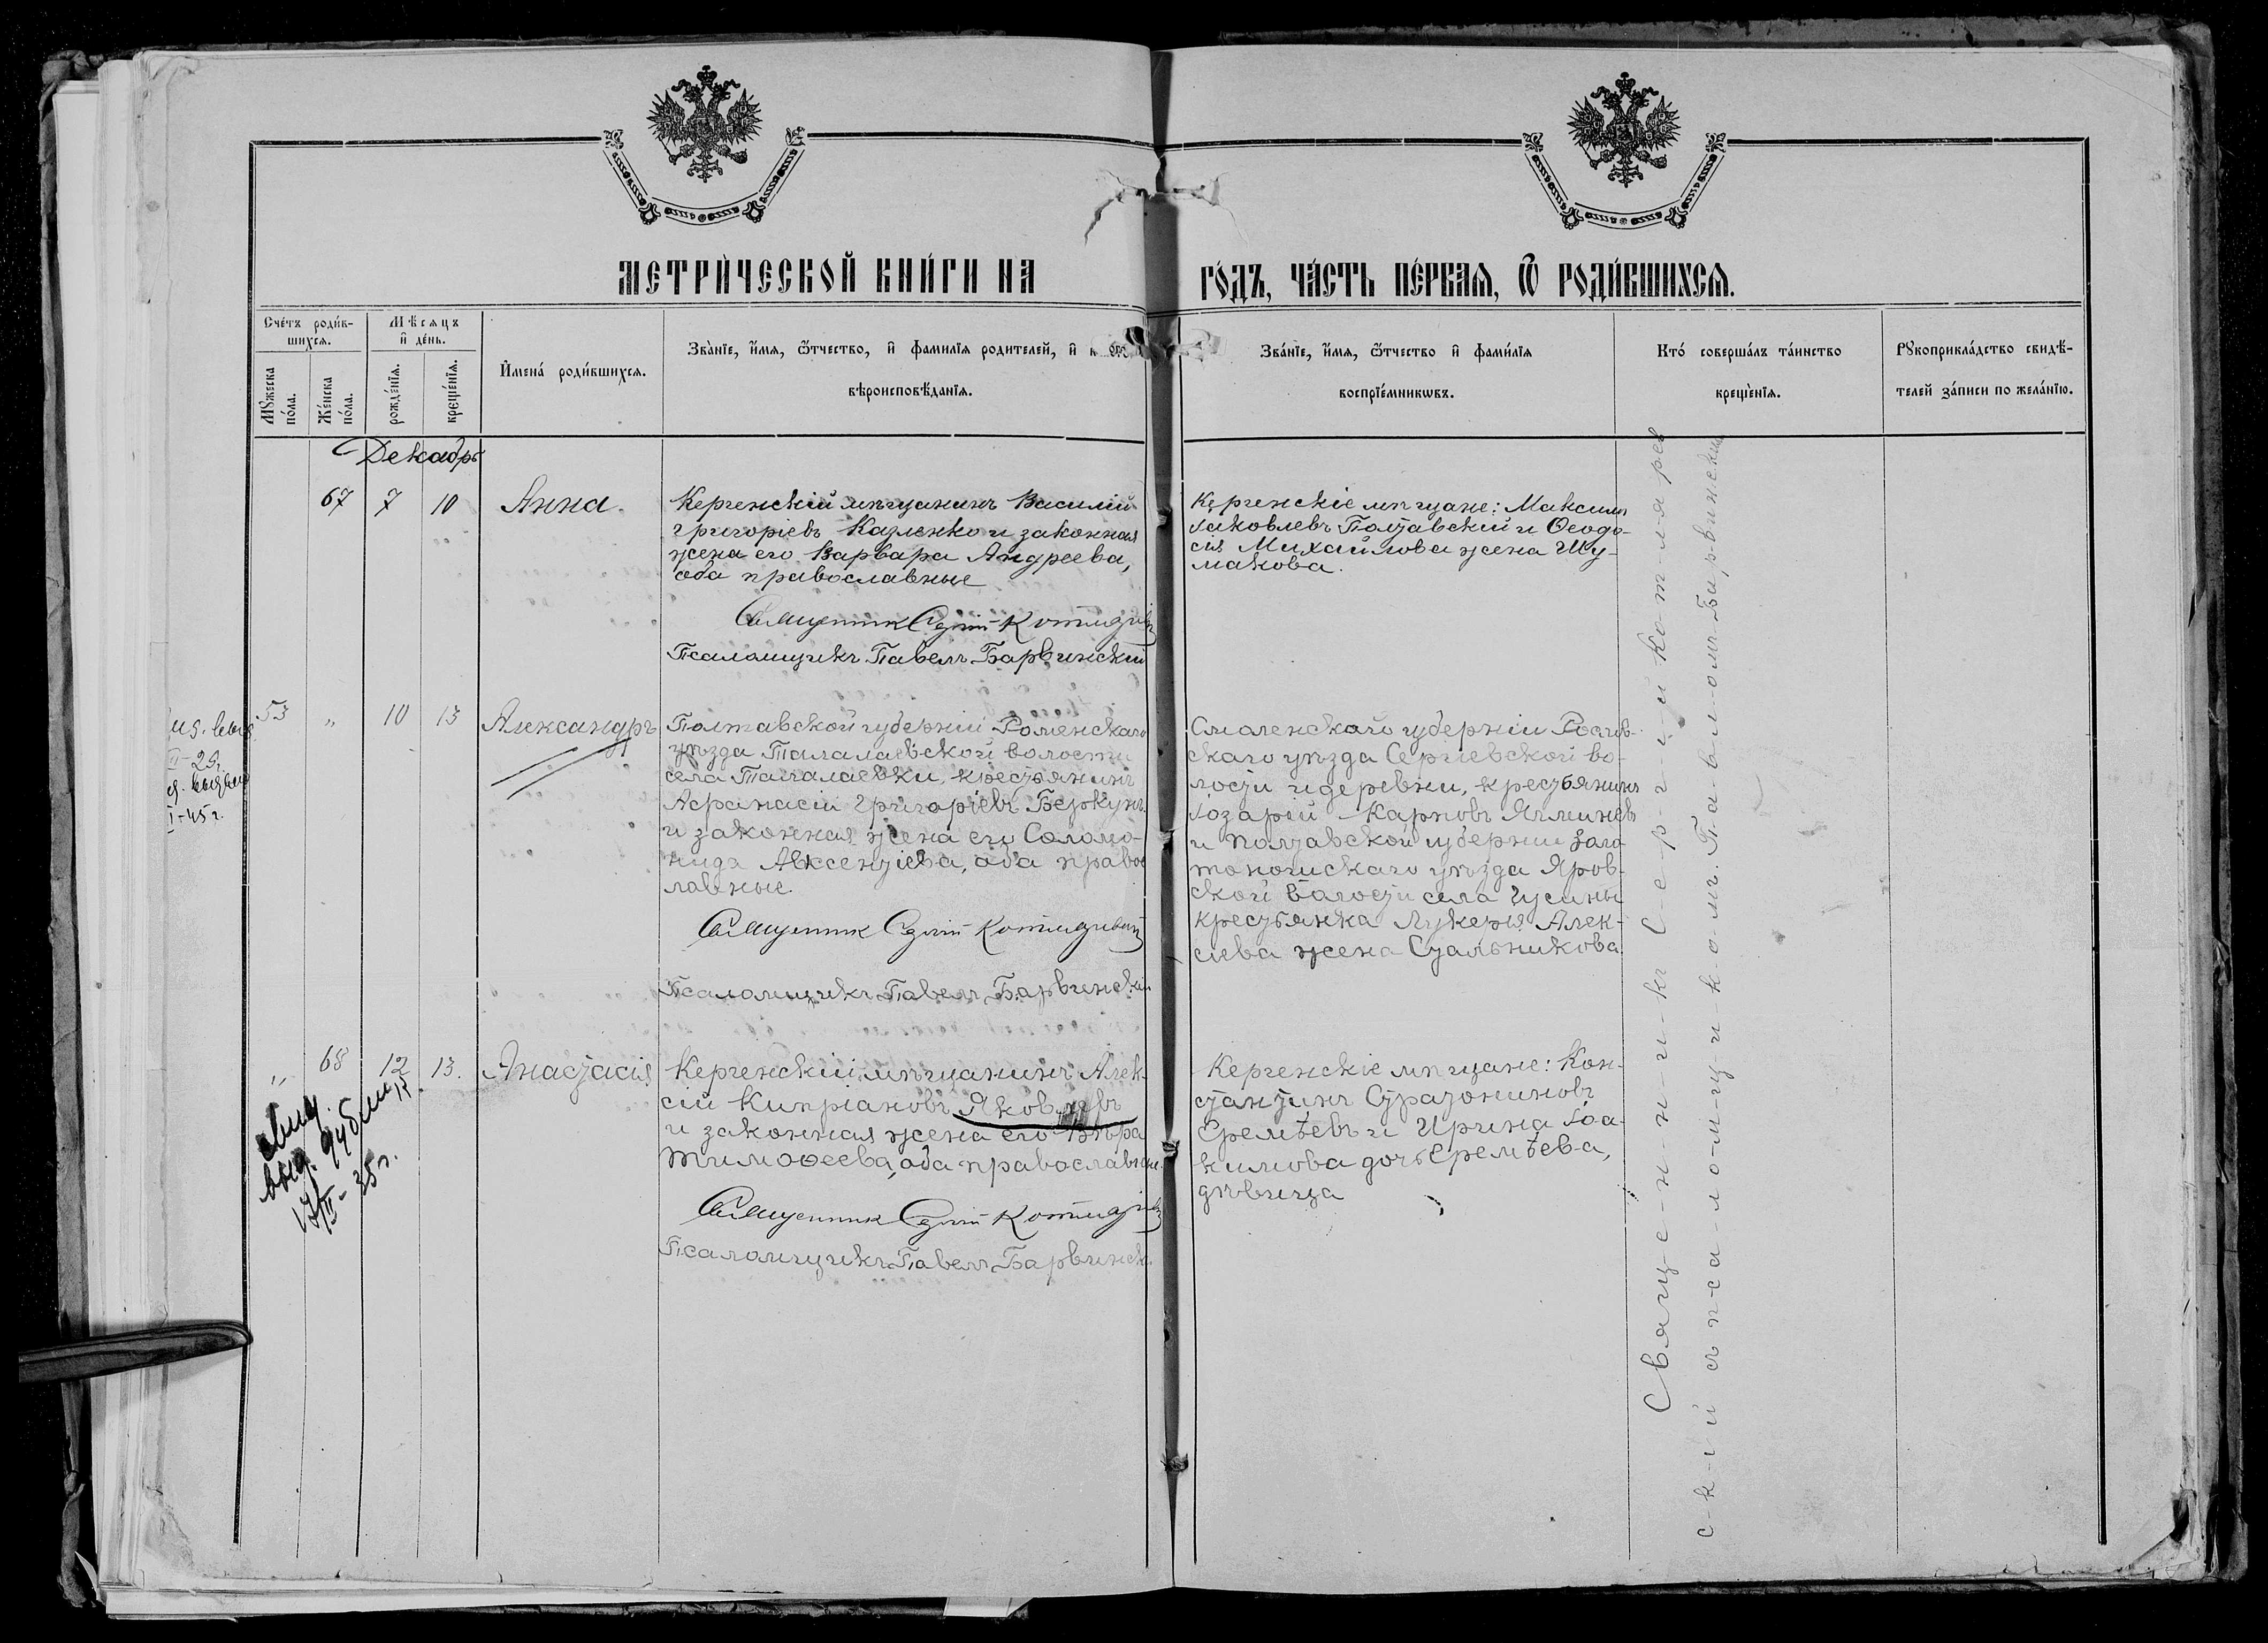 МЕТРИ́ЧЕСКОЙ КНИ́ГИ НА
ГО́ДЪ, ЧА́СТЬ ПЕ́РВАЯ, Ѿ РОДИ́ВШИХСЯ.
Сче́тъ роди́в-
шихся.
Мѣсяцъ
и де́нь.
Му́жеска
по́ла.
Же́нска
по́ла.
рожде́нїя.
креще́нїя.
Имена́ роди́вшихся.
Зва́нїе, и́мя, ѻ́тчество, и фамилїя родителей, и
вѣроисповѣ́данїя.
Зва́нїе, и́мя, ѻ́тчество и фами́лїя
воспрїе́мниковъ.
Кто́ соверша́лъ та́инство
креще́нїя.
Рукоприкла́дство свидѣ́-
телей за́писи по жела́нїю.
Декабрь
67 7 10 Анна.
Керченскій мѣщанинъ Василій
Григоріевъ Казленко и законная
жена его Варвара Андреева,
оба православные
Священник Сергій Котляревскій
Псаломщикъ Павелъ Барвинскій
Керченскіе мѣщане: Максимъ
Іаковлевъ Полтавскій и Ѳеодо-
сія Михайлова жена Шу-
макова.
53 " 10 13 Александръ
Полтавской губерніи Роменскаго
уѣзда Талалаевской волости
села Талалаевки, крестьянинъ
Аѳанасій Григоріевъ Беркунъ
и законная жена его Соломо-
нида Авксентіева, оба правос
лавные.
Священник Сергій Котляревскій
Псаломщикъ Павелъ Барвинскій
Смоленской губерніи Рослов-
скаго уѣзда Сергіевской во-
лости и деревни, крестьянинъ
Назарій Карповъ Ячминевъ
и Полтавской губерніи Золо-
тоношскаго уѣзда Яров-
ской волости села Гусины
крестьянка Лукерья Алек-
сіева жена Стальникова.
II-29г.
I-45 г.
" 68 12 13. Анастасія
Керченскій мѣщанинъ Алек-
сій Кипріановъ Яковлевъ
и законная жена его Вѣра
Тимоѳеева, оба православные.
Священник Сергій Котляревскій
Псаломщикъ Павелъ Барвинск.
Керченскіе мѣщане: Кон-
стантинъ Стратониковъ
Еремѣевъ и Ирина Іоа-
кимова дочь Еремѣева,
дѣвица
выд. дубликат
17/III-35г.
С в я щ-е-н-н-и-къ С-е-р-г-і-й Ко-т-л-я-рев
с-к-і-й съ п-с-а-л-о-м-щ-и-к-о-мъ П-а-в-л-о-мъ Барвинскимъ